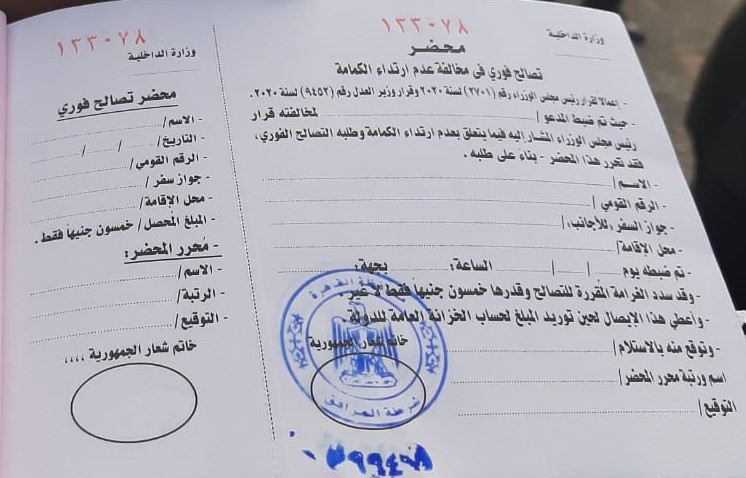 ١٣٣٠٧٨
وزارة الداخلية
محضر
تصالح فوري في مخالفة عدم ارتداء الكمامة
- إعمالاً لقرار رئيس مجلس الوزراء رقم (٢٧٠١) لسنة ٢٠٢٠ وقرار وزير العدل رقم (٩٤٥٢) لسنة ٢٠٢٠.
- حيث تم ضبط المدعو / لمخالفته قرار
رئيس مجلس الوزراء المشار إليه فيما يتعلق بعدم ارتداء الكمامة وطلبه التصالح الفوري،
فقد تحرر هذا المحضر - بناءً على طلبه.
- الاسم /
- الرقم القومي /
- جواز السفر للأجانب /
- محل الإقامة /
- تم ضبطه يوم / / الساعة: بجهة:
- وقد سدد الغرامة المقررة للتصالح وقدرها خمسون جنيهاً فقط لا غير.
- وأعطي هذا الإيصال لحين توريد المبلغ لحساب الخزانة العامة للدولة.
خاتم شعار الجمهورية
- وتوقع منه بالاستلام /
اسم ورتبة محرر المحضر /
التوقيع /
القاهرة
شرطة المرافق
١٣٣٠٧٨
وزارة الداخلية
محضر تصالح فوري
- الاسم /
- التاريخ / / /
- الرقم القومي /
- جواز سفر /
- محل الإقامة /
- المبلغ المُحصل / خمسون جنيهاً فقط.
- محرر المحضر:
- الاسم /
- الرتبة /
- التوقيع /
خاتم شعار الجمهورية ،،،،